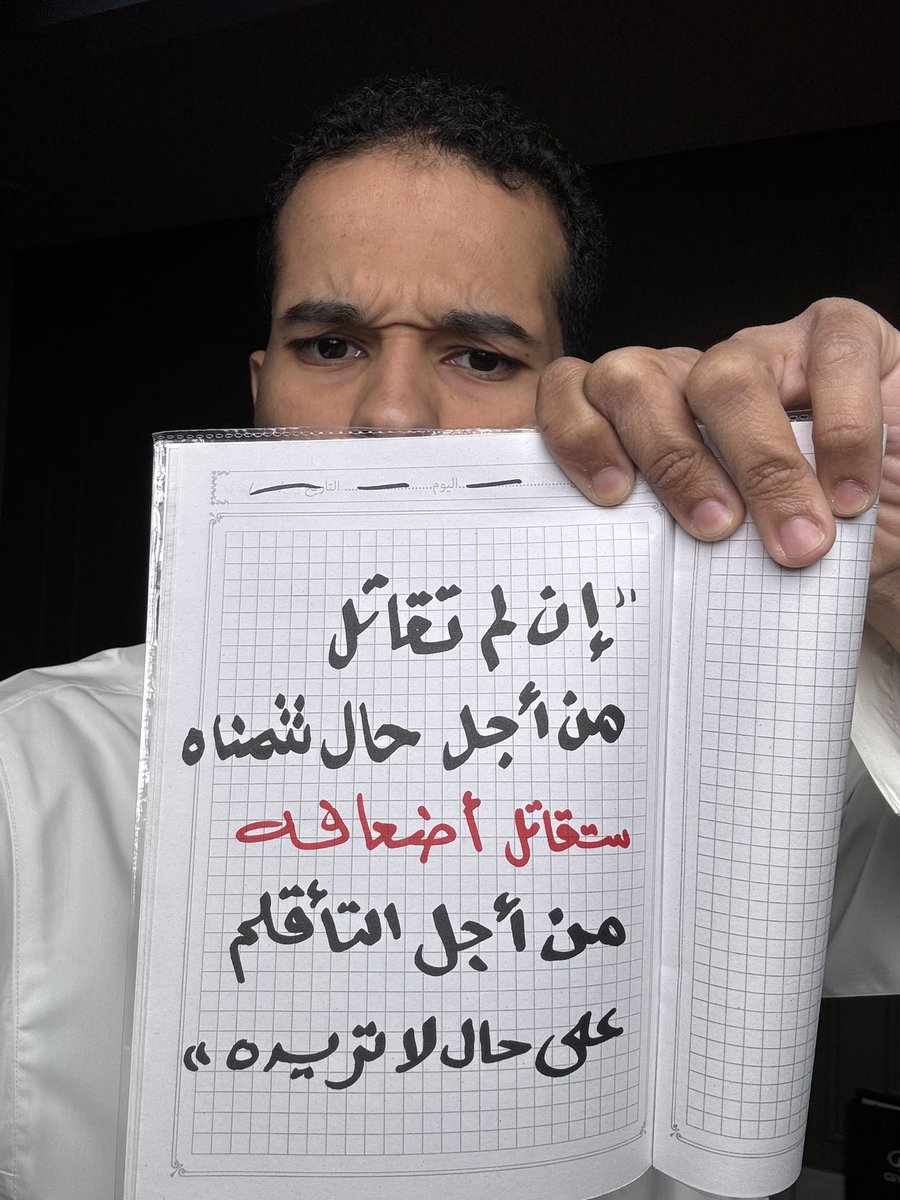 اليوم ................ التاريخ
"إن لم تقاتل
من أجل حال تتمناه
ستقاتل أضعافه
من أجل التأقلم
على حال لا تريده"